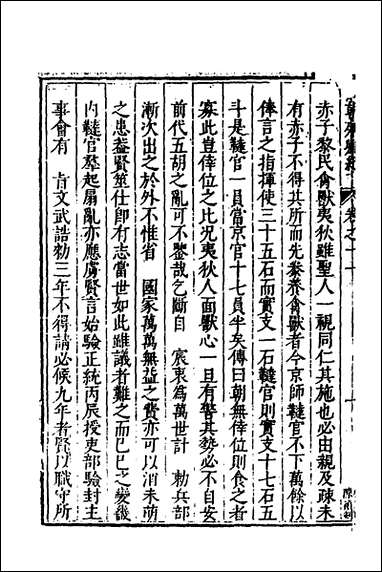 赤子黎民禽獸夷狄雖聖人一視同仁其施也必由親及疎未
有赤子不得其所而先豢養禽獸者今京師韃官不下萬餘以
俸言之指揮使三十五石而實支一石韃官則實支十七石五
斗是韃官一員當京官十七員半矣傳曰朝無倖位則食之者
寡此豈倖位之比況夷狄人面獸心一旦有警其勢必不自安
前代五胡之亂可不鑒哉乞斷自 宸衷為萬世計 勑兵部
漸次出之於外不惟省 國家萬萬無益之費亦可以消未萌
之患盖賢筮仕即有志當世如此雖議者難之而己巳之變畿
内韃官羣起扇亂亦應虜賢言始驗正統丙辰授吏部驗封主
事會有 㫖文武誥勑三年不得請必候九年者賢以職守所
卷之十